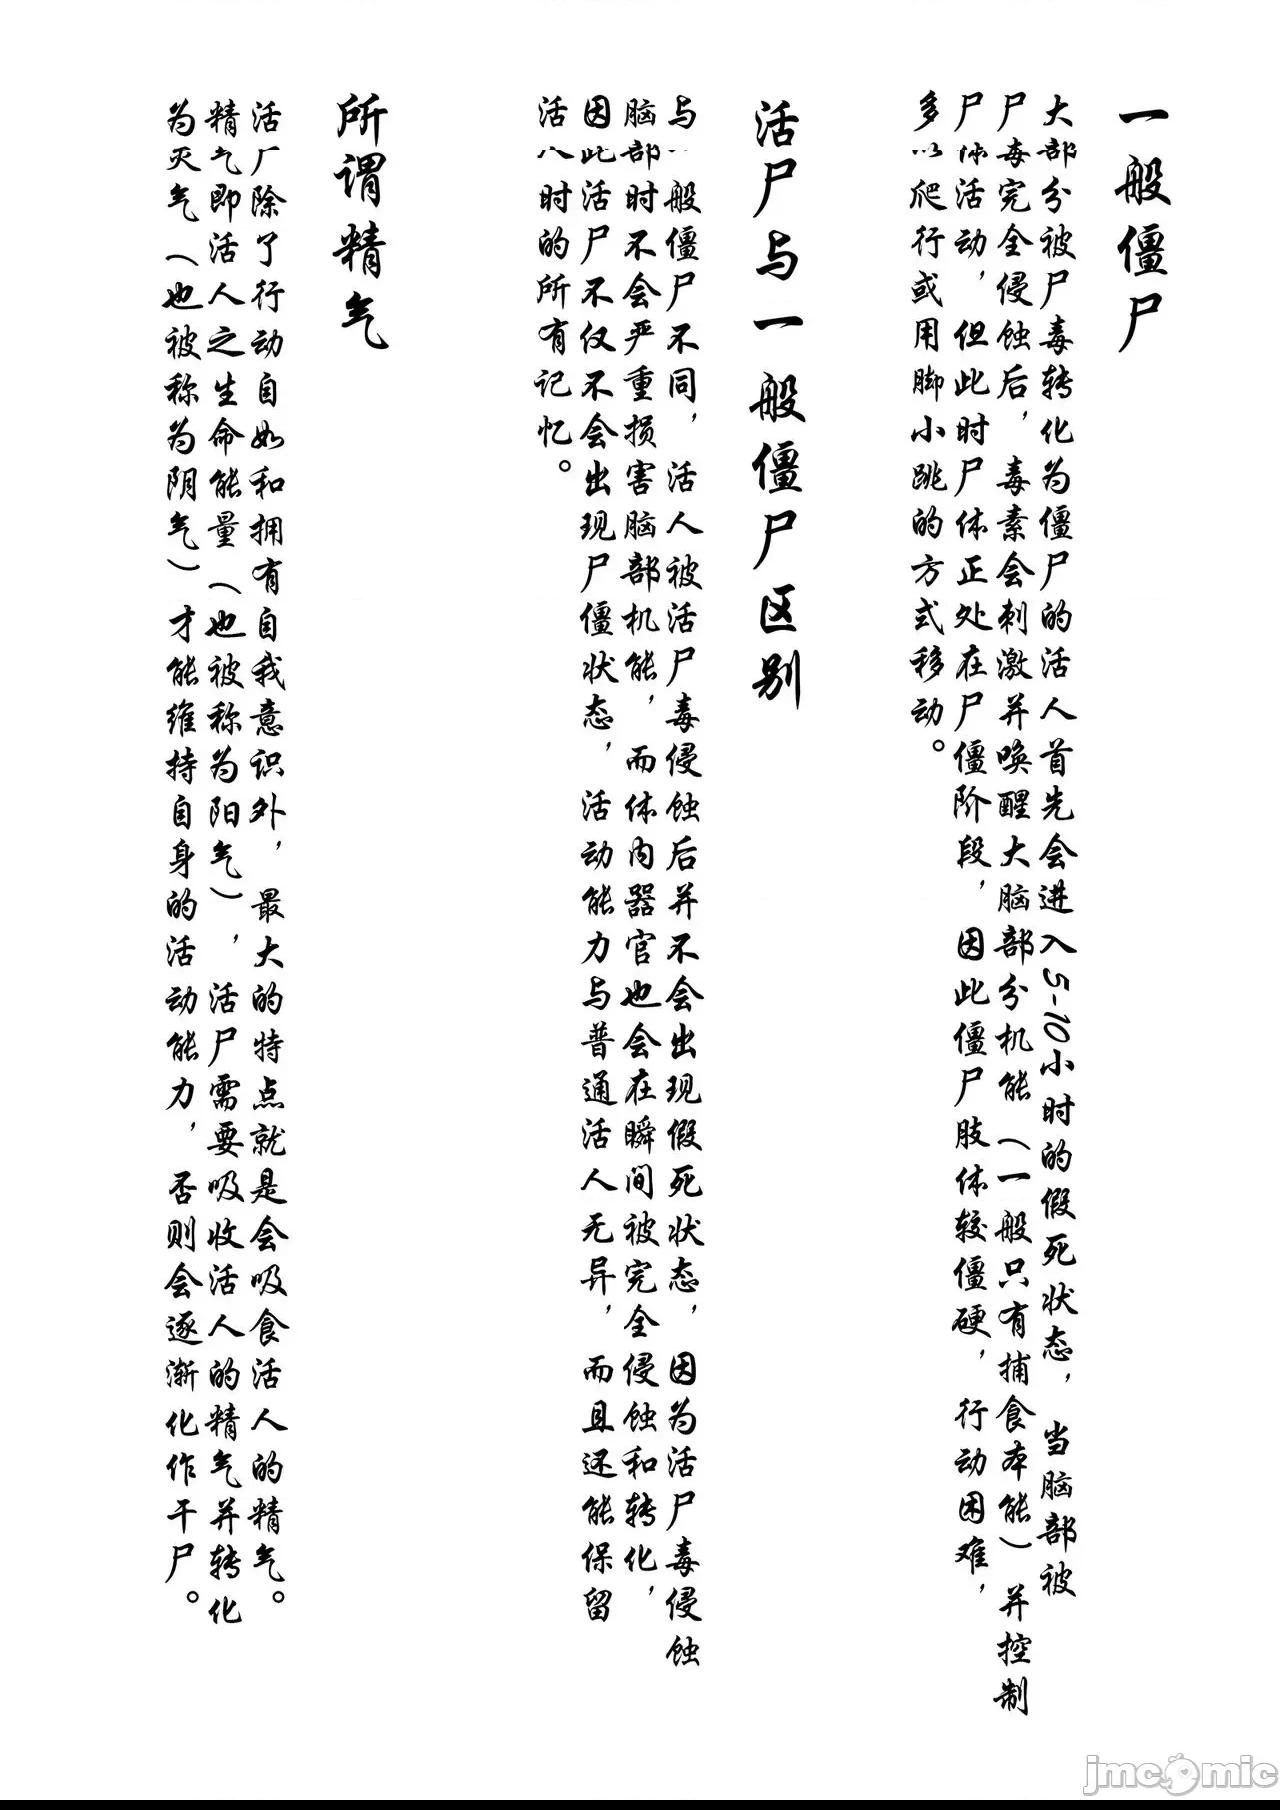 一般僵尸
大部分被尸毒转化为僵尸的活人首先会进入5-10小时的假死状态，当脑部被
尸毒完全侵蚀后，毒素会刺激并唤醒大脑部分机能（一般只有捕食本能）并控制
尸体活动，但此时尸体正处在尸僵阶段，因此僵尸肢体较僵硬，行动困难，
多以爬行或用脚小跳的方式移动。
活尸与一般僵尸区别
与一般僵尸不同，活人被活尸毒侵蚀后并不会出现假死状态，因为活尸毒侵蚀
脑部时不会严重损害脑部机能，而体内器官也会在瞬间被完全侵蚀和转化，
因此活尸不仅不会出现尸僵状态，活动能力与普通活人无异，而且还能保留
活人时的所有记忆。
所谓精气
活尸除了行动自如和拥有自我意识外，最大的特点就是会吸食活人的精气。
精气即活人之生命能量（也被称为阳气），活尸需要吸收活人的精气并转化
为灭气（也被称为阴气）才能维持自身的活动能力，否则会逐渐化作干尸。
jmcomic